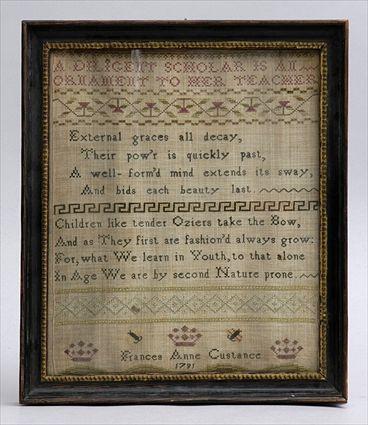 A DILIGENT SCHOLAR IS AN
ORNAMENT TO HER TEACHER
External graces all decay,
Their pow'r is quickly past,
A well-form'd mind extends its sway,
And bids each beauty last.
Children like tender Oziers take the Bow,
And as They first are fashion'd always grow:
For, what We learn in Youth, to that alone
In Age We are by second Nature prone.
Frances Anne Custance
1791